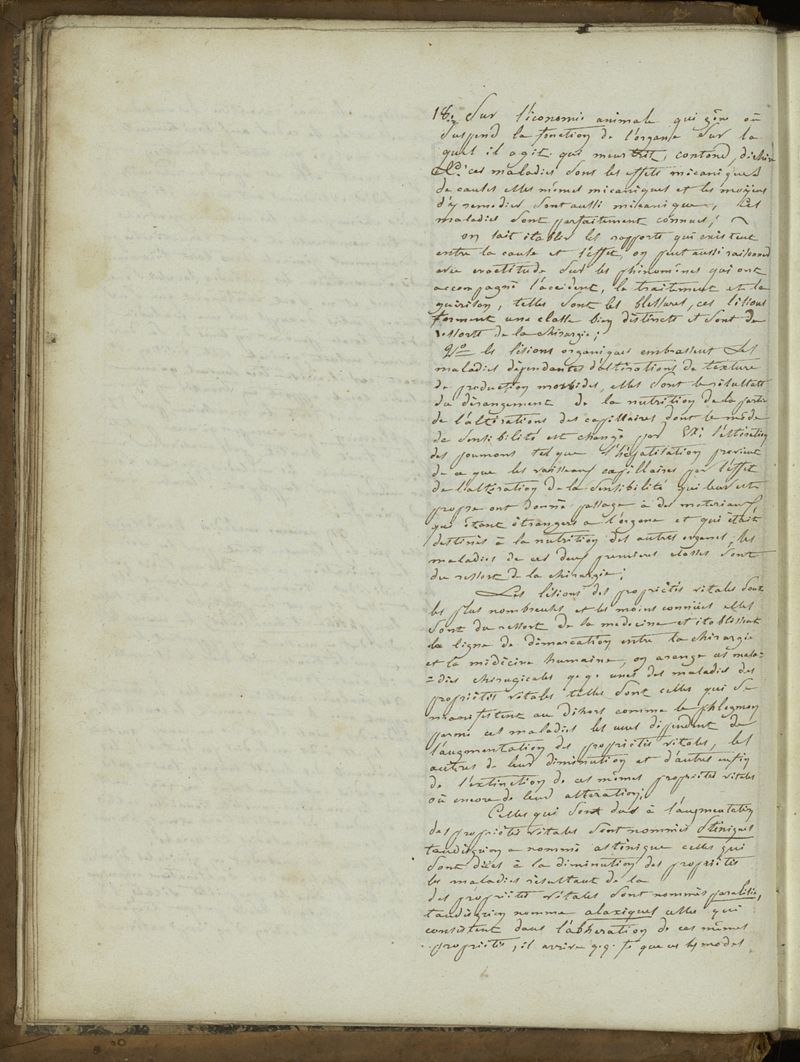 18. Sur l'économie animale qui gêne où
suspend la fonction de l'organe sur la
quel il agit qui meurtrit, contond, déchire
ces maladies sont les effets mécaniques
de causes elles mêmes mécaniques et les moyens
d'y remedier sont aussi mécanique, ces
maladies sont parfaitement connues,
on sait établir les rapports qui existent
entre la cause et l'effet, on peut aussi raisonner
avec exactitude sur les phénomènes qui ont
accompagné l'accident, le traitement et la
guérison, telles sont les blessures, ces lésions
forment une classe bien distincte et sont de
ressorts de la chirurgie;
les lésions organiques embrassent les
maladies dépendantes d'altérations de texture
de production morbides, elles sont le résultat
du dérangement de la nutrition de la partie
de l'altérations des capillaires dont le mode
de sensibilité est changé par
des poumons tel que l'hépatisation provient
de ce que les vaisseaux capillaires par l'effet
de l'altération de la sensibilité qui leur est
propre ont donné passage à des materiaux
qui étant étrangers a l'organe et qui était
destinés à la nutrition des autres organes, les
maladies de ces deux premieres classes sont
du ressort de la chirurgie;
Les lésions des propriétés vitales sont
les plus nombreuses et les moins connues elles
sont du ressort de la medecine et établissent
la ligne de démarcation entre la chirurgie
et la médicine humaine, on arange ces mala-
=dies chirugicales q.q. unes des maladies des
propriétés vitales telles sont celles qui se
manifestent au dehors comme le phlegmon
parmi ces maladies les unes dépendent de
l'augmentation des propriétés vitales, les
autres de leur diminution et d'autres enfin
de l'extinction de ces mêmes propriétés vitales
où encore de leur alteration;
Celles qui sont dus à l'augmentation
des propriétés vitales sont nommées sténiques
tandisqu'on a nommé asténique celles qui
sont dües à la diminution des propriétés
les maladies résultant de la
des propriétés vitales sont nommés
tandisqu'on nomme ataxiques celles qui
consistent dans l'abération de ces mêmes
propriétés, il arrive q.q. f. que ces modes